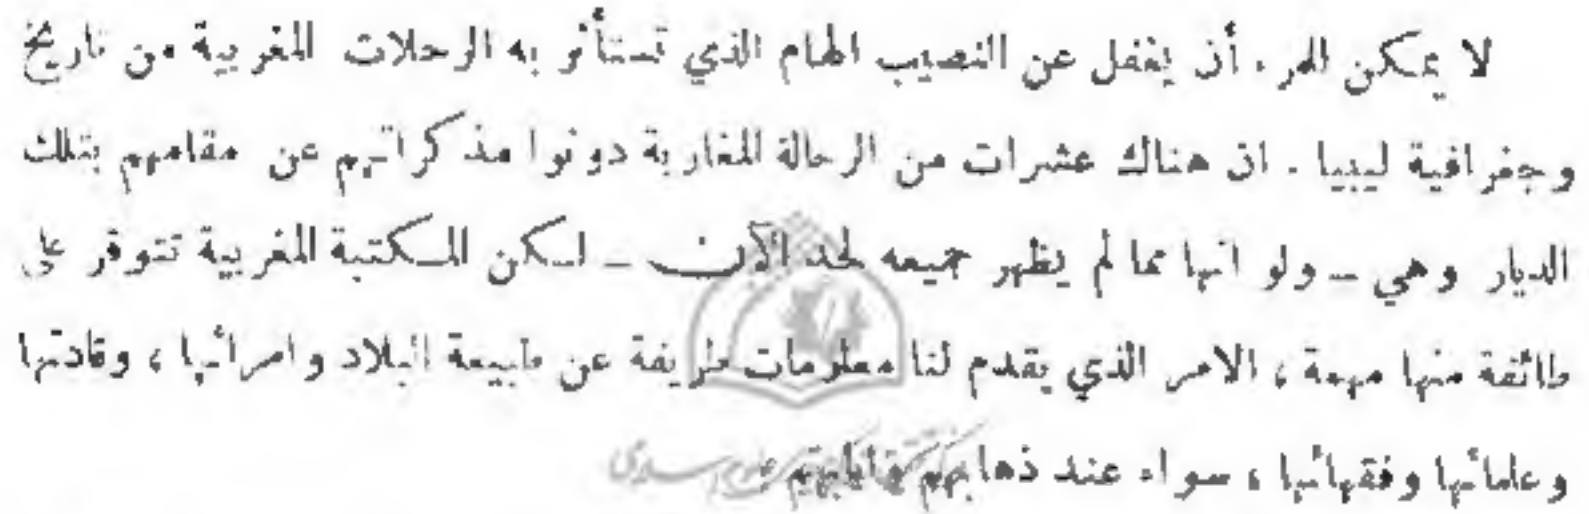 لا يمكن للمرء أن يغفل عن النصيب الهام الذي تستأثر به الرحلات المغربية من تاريخ
وجغرافية ليبيا . ان هناك عشرات من الرحالة المغاربة دونوا مذكراتهم عن مقامهم بتلك
الديار وهي ــ ولو انها مما لم يظهر جميعه لحد الآن ــ لكن المكتبة المغربية تتوفر على
طائفة منها مهمة ، الامر الذي يقدم لنا معلومات طريفة عن طبيعة البلاد وامرائها ، وقادتها
وعلمائها وفقهائها ، سواء عند ذهابهم